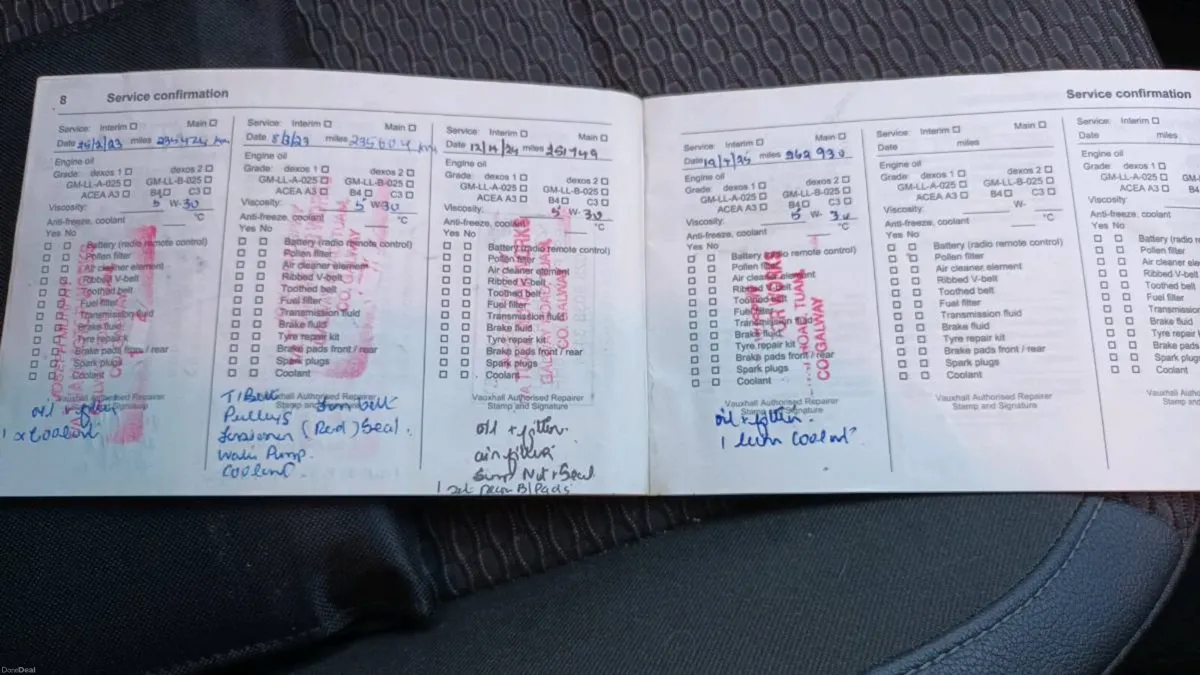 8 Service confirmation
Service: Interim Main
Date 25/2/23 miles 234424 km
Engine oil
Grade: dexos 1 dexos 2
GM-LL-A-025 GM-LL-B-025
ACEA A3 B4 C3
Viscosity: 5 W-30
Anti-freeze, coolant °C
Yes No
Battery (radio remote control)
Pollen filter
Air cleaner element
Ribbed V-belt
Toothed belt
Fuel filter
Transmission fluid
Brake fluid
Tyre repair kit
Brake pads front / rear
Spark plugs
Coolant
Vauxhall Authorised Repairer
Stamp and Signature
oil + filter
1 x Coolant
Service: Interim Main
Date 8/3/23 miles 235604 km
Engine oil
Grade: dexos 1 dexos 2
GM-LL-A-025 GM-LL-B-025
ACEA A3 B4 C3
Viscosity: 5 W-30
Anti-freeze, coolant °C
Yes No
Battery (radio remote control)
Pollen filter
Air cleaner element
Ribbed V-belt
Toothed belt
Fuel filter
Transmission fluid
Brake fluid
Tyre repair kit
Brake pads front / rear
Spark plugs
Coolant
CO. GALWAY
Vauxhall Authorised Repairer
Stamp and Signature
T/Belt
Pulleys
(Red) Seal.
Pump.
Coolant
Service: Interim Main
Date 12/4/24 miles 251749
Engine oil
Grade: dexos 1 dexos 2
GM-LL-A-025 GM-LL-B-025
ACEA A3 B4 C3
Viscosity: 5 W- 30
Anti-freeze, coolant °C
Yes No
Battery (radio remote control)
Pollen filter
Air cleaner element
Ribbed V-belt
Toothed belt
Fuel filter
Transmission fluid
Brake fluid
Tyre repair kit
Brake pads front / rear
Spark plugs
Coolant
GALWAY ROAD, TUAM,
CO. GALWAY
Vauxhall Authorised Repairer
Stamp and Signature
oil + filter.
air filter
Sump Nut + Seal
1 set B/Pads
Service confirmation
Service: Interim Main
Date 19/4/25 miles 262930
Engine oil
Grade: dexos 1 dexos 2
GM-LL-A-025 GM-LL-B-025
ACEA A3 B4 C3
Viscosity: 5 W- 30
Anti-freeze, coolant °C
Yes No
Battery (radio remote control)
Pollen filter
Air cleaner element
Ribbed V-belt
Toothed belt
Fuel filter
Transmission fluid
Brake fluid
Tyre repair kit
Brake pads front / rear
Spark plugs
Coolant
CO. GALWAY
Vauxhall Authorised Repairer
Stamp and Signature
oil + filter.
1 Coolant
Service: Interim Main
Date miles
Engine oil
Grade: dexos 1 dexos 2
GM-LL-A-025 GM-LL-B-025
ACEA A3 B4 C3
Viscosity: W-
Anti-freeze, coolant °C
Yes No
Battery (radio remote control)
Pollen filter
Air cleaner element
Ribbed V-belt
Toothed belt
Fuel filter
Transmission fluid
Brake fluid
Tyre repair kit
Brake pads front / rear
Spark plugs
Coolant
Vauxhall Authorised Repairer
Stamp and Signature
Service: Interim
Date miles
Engine oil
Grade: dexos 1
GM-LL-A-025 GM-LL
ACEA A3
Viscosity:
Anti-freeze, coolant
Yes No
Battery (radio
Pollen filter
Air cleaner
Ribbed V-belt
Toothed belt
Fuel filter
Transmission
Brake fluid
Tyre repair
Brake pads
Spark plugs
Coolant
Vauxhall
Stamp
DoneDeal